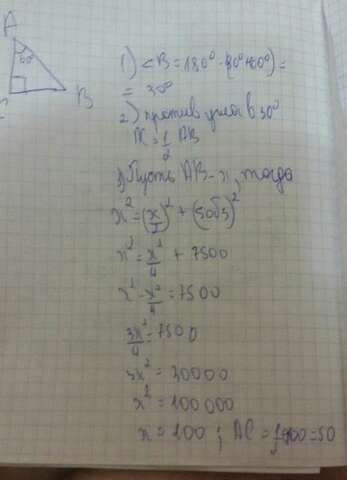 A
60°
B
1) <B = 180° - (90°+60°) =
= 30°
2) против угла в 30°
AC = 1/2 AB
3) Пусть AB - x, тогда
x² = (x/2)² + (50√3)²
x² = x²/4 + 7500
x² - x²/4 = 7500
3x²/4 = 7500
3x² = 30000
x² = 100000
x = 100 ; AC = 100 = 50